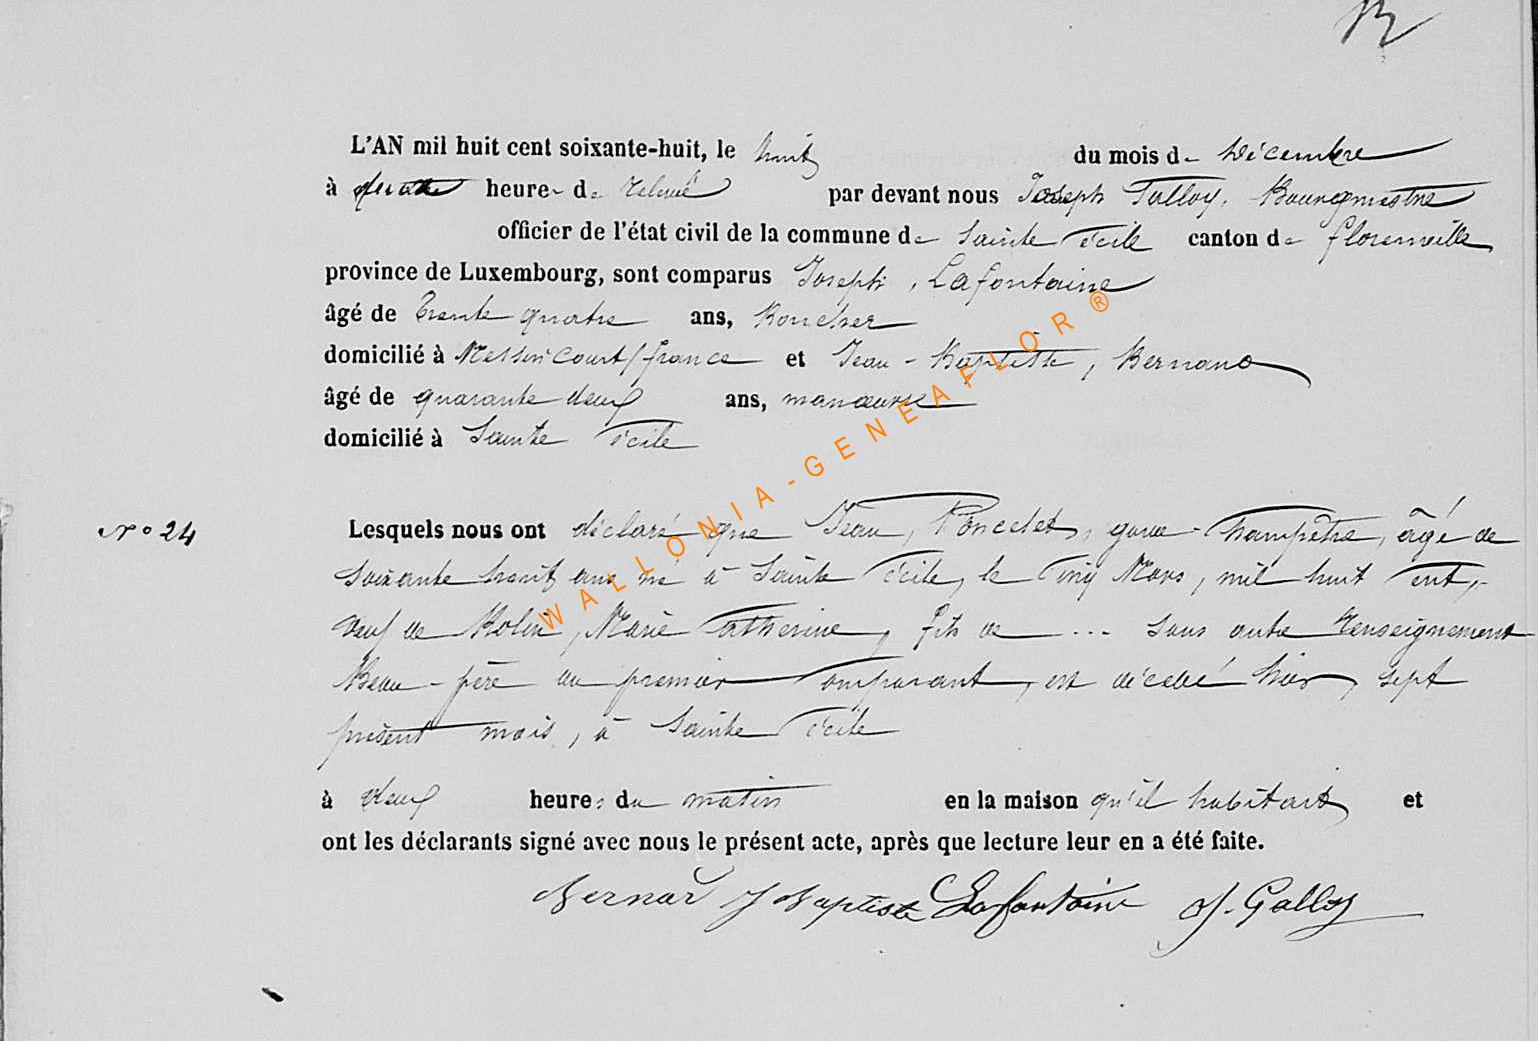 L'AN mil huit cent soixante-huit, le huit du mois de Décembre
à quatre heures de relevée par devant nous Joseph Galloy, Bourgmestre
officier de l'état civil de la commune de Sainte Cécile canton de florenville
province de Luxembourg, sont comparus Joseph, Lafontaine
âgé de trente quatre ans, Boucher
domicilié à Messincourt / france et Jean-Baptiste, Bernard
âgé de quarante deux ans, manœuvre
domicilié à Sainte Cécile
N° 24 Lesquels nous ont déclaré que Jean, Poncelet, garde-champêtre, âgé de
soixante huit ans né à Sainte Cécile, le cinq Mars, mil huit cent,
veuf de Marie Catherine, fils de ... sans autre renseignement
Beau-père au premier comparant, est décédé hier, sept
présent mois, à Sainte Cécile
à deux heures du matin en la maison qu'il habitait et
ont les déclarants signé avec nous le présent acte, après que lecture leur en a été faite.
Bernard J Baptiste Lafontaine J. Galloy
WALLONIA-GENEAFLOR®